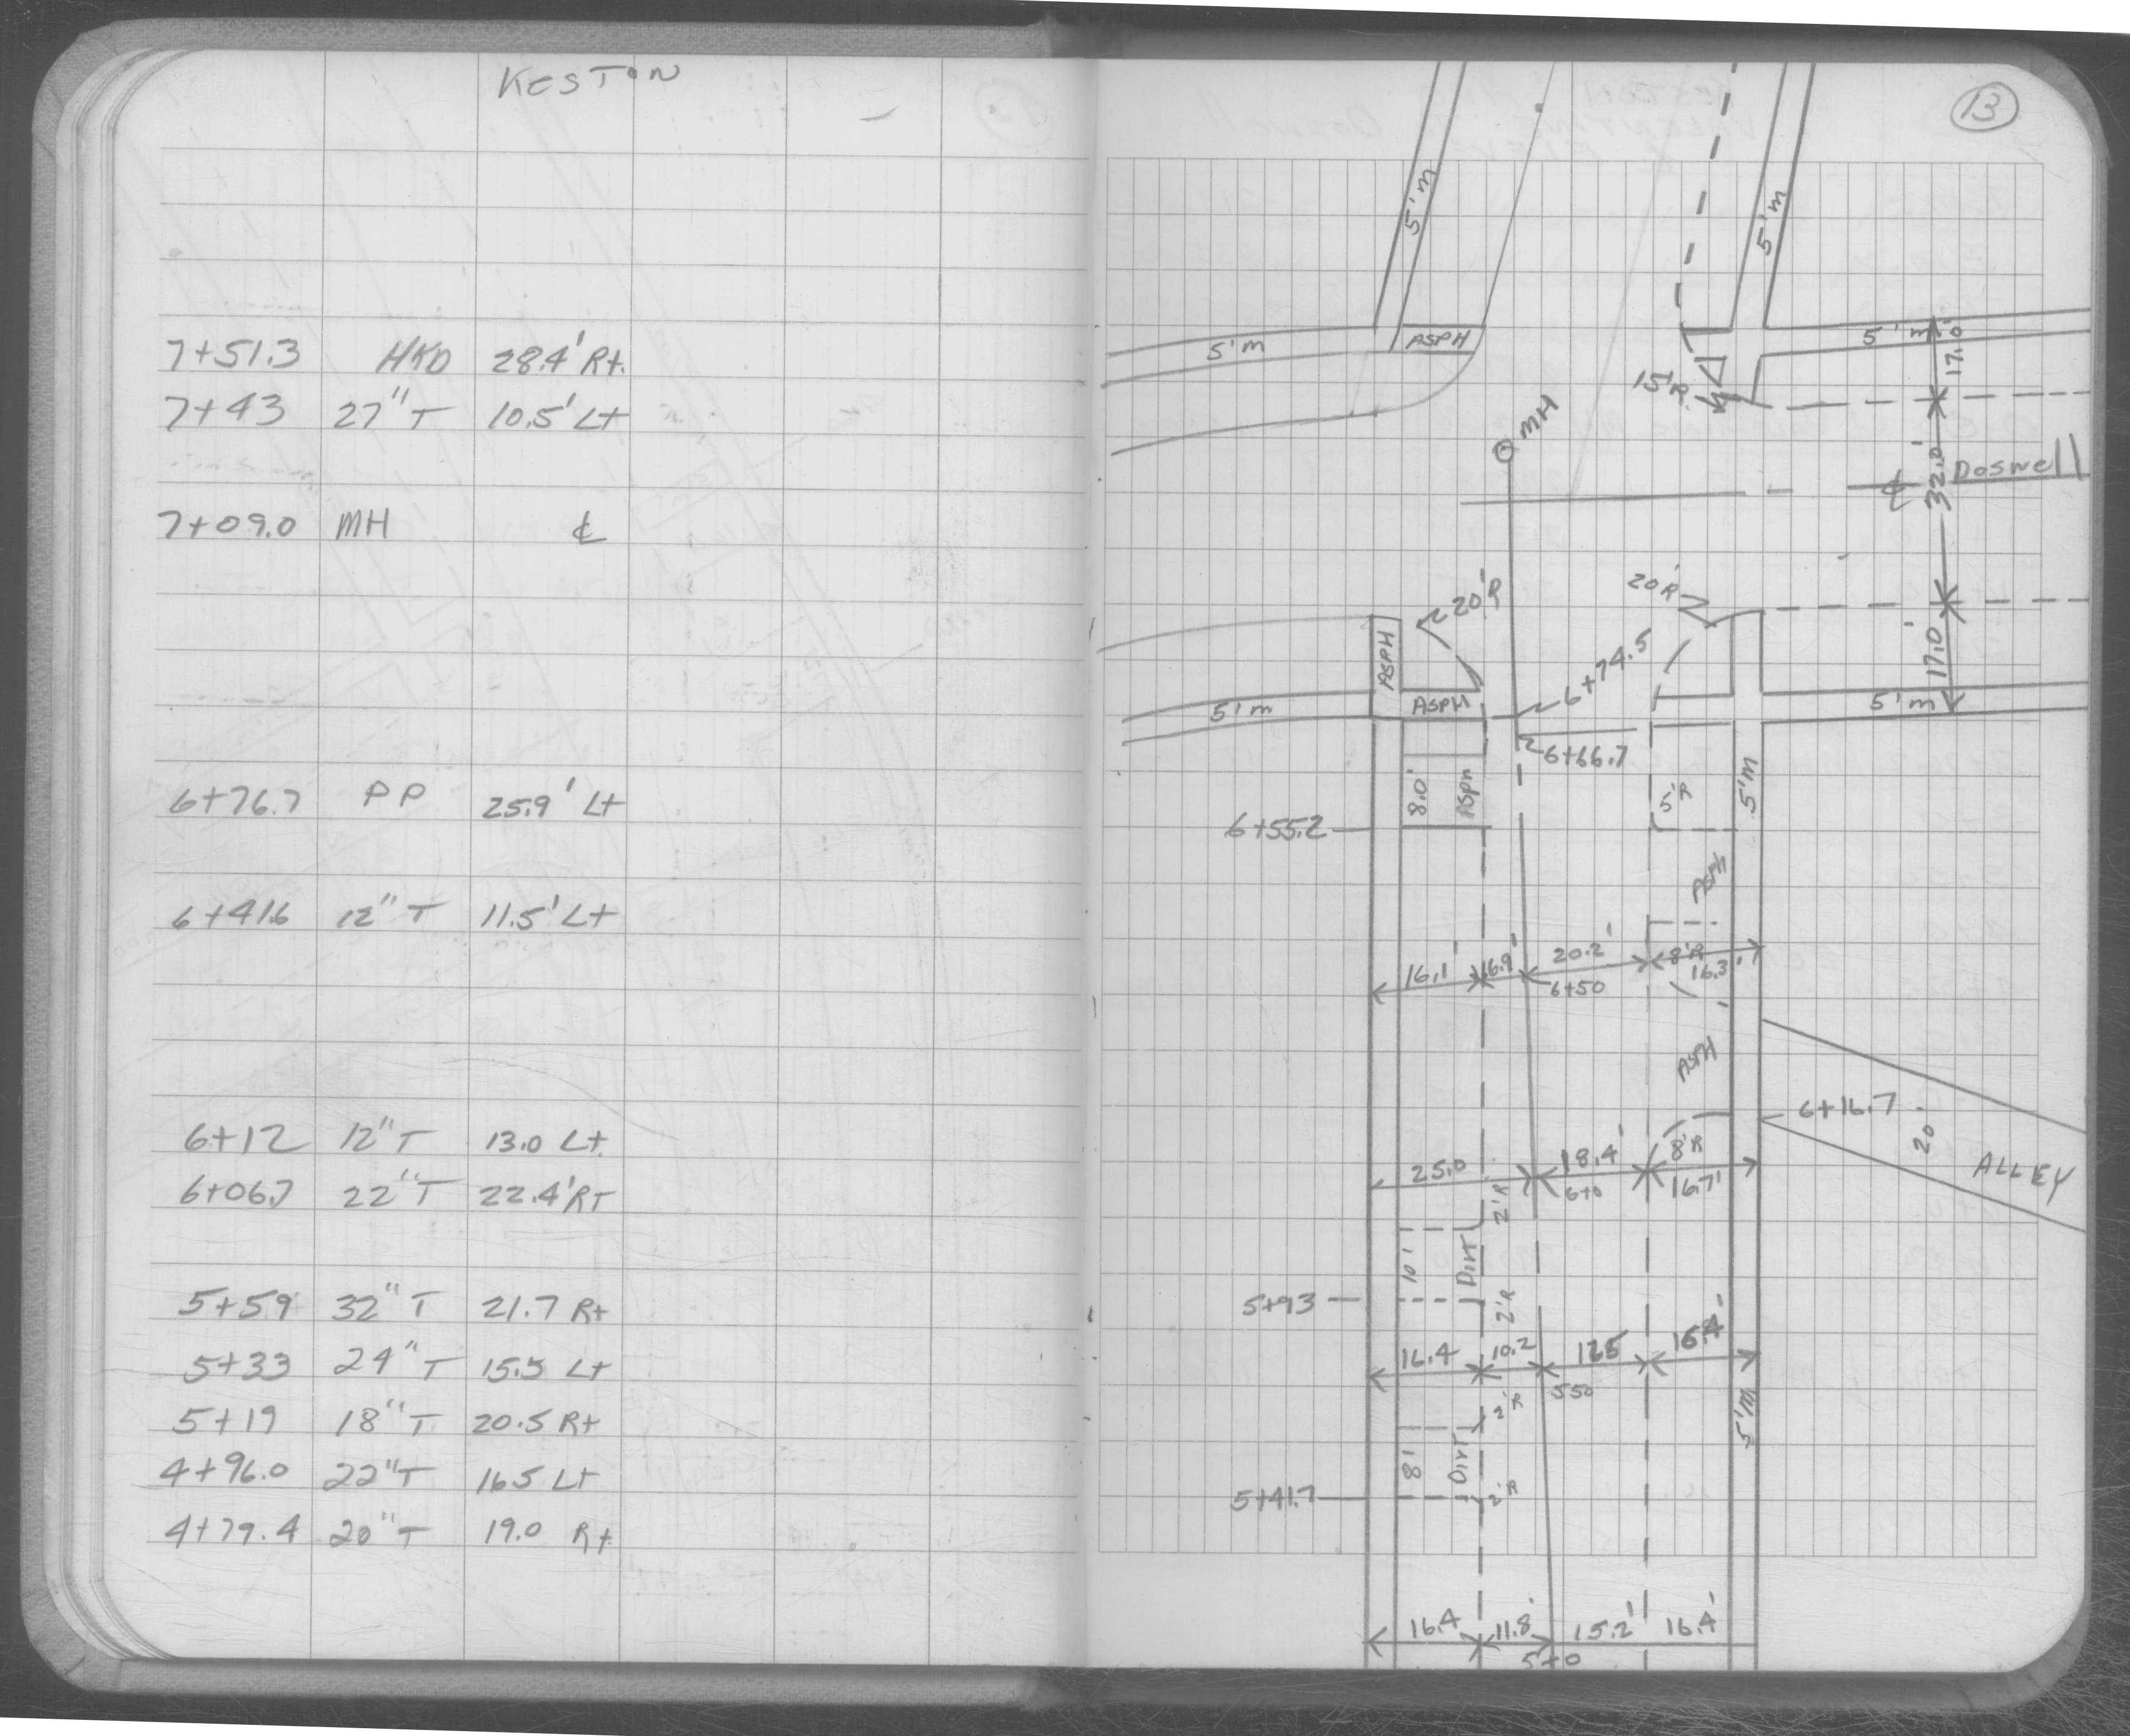 KESTON
7+51.3 HYD 28.4' Rt.
7+43 27" T 10.5' Lt
7+09.0 MH ℄
6+76.7 PP 25.9' Lt
6+41.6 12" T 11.5' Lt
6+12 12" T 13.0 Lt.
6+06.7 22" T 22.4' RT
5+59 32" T 21.7 Rt
5+33 24" T 15.5 Lt
5+19 18" T 20.5 Rt
4+96.0 22" T 16.5 Lt
4+79.4 20" T 19.0 Rt
13
5'm 5'm
5'm ASPH 5'm 17.0'
15'R
MH
32.0' ℄ Doswell
20'R 20'R
ASPH 6+74.5 17.0'
5'm ASPH 5'm
6+66.7
8.0' ASPH 5'R 5'm
6+55.2
ASPH
16.1' 16.9' 20.2' 8'R
6+50 16.3'
ASPH
6+16.7
20'
ALLEY
25.0 18.4' 8'R
6+0 16.7'
2'R
10' Dirt
5+93 2'R
16.4 10.2 16.4'
550
2'R 5'm
8' Dirt
5+41.7 2'R
16.4 11.8' 15.2' 16.4'
5+0